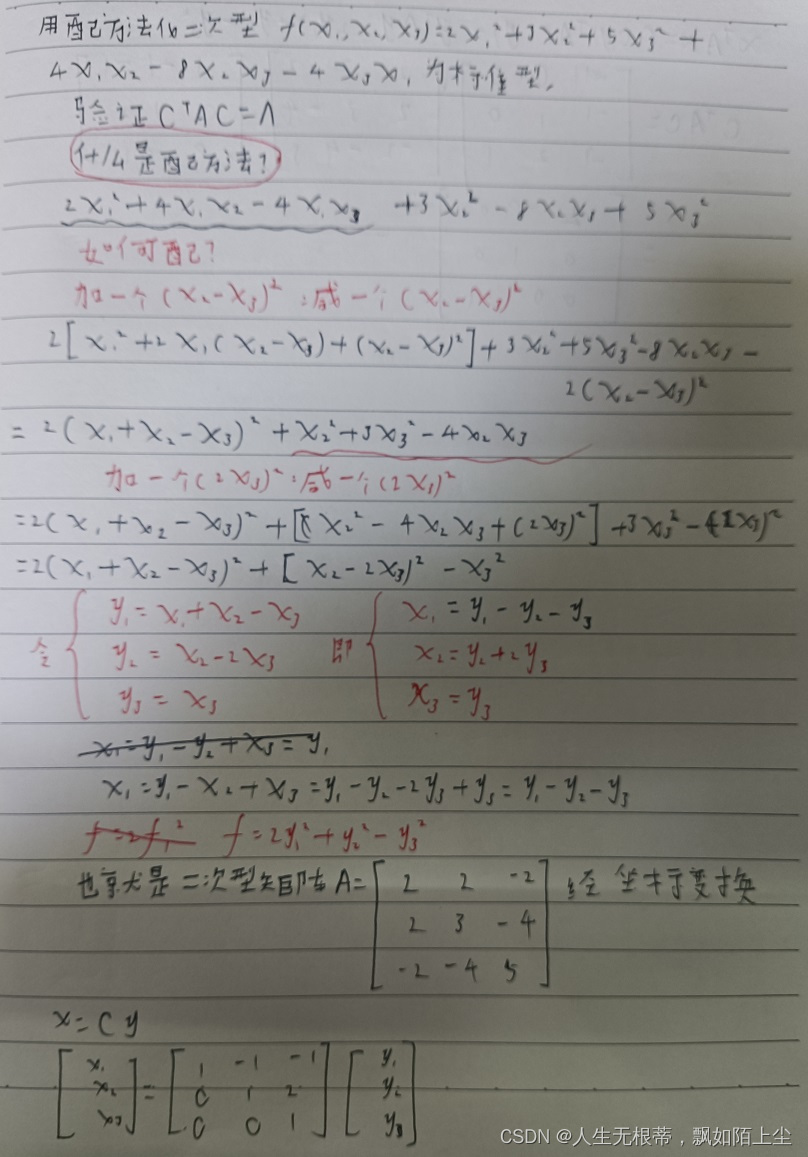 用配方法化二次型 f(x₁,x₂,x₃)=2x₁²+3x₂²+5x₃²+
4x₁x₂-8x₂x₃-4x₃x₁为标准型,
验证CᵀAC=Λ
什么是配方法?
2x₁²+4x₁x₂-4x₁x₃ +3x₂²-8x₂x₃+5x₃²
如何配?
加一个(x₂-x₃)²;减一个(x₂-x₃)²
2[x₁²+2x₁(x₂-x₃)+(x₂-x₃)²]+3x₂²+5x₃²-8x₂x₃-
2(x₂-x₃)²
=2(x₁+x₂-x₃)²+x₂²+3x₃²-4x₂x₃
加一个(2x₃)²;减一个(2x₃)²
=2(x₁+x₂-x₃)²+[x₂²-4x₂x₃+(2x₃)²]+3x₃²-(2x₃)²
=2(x₁+x₂-x₃)²+[x₂-2x₃)²-x₃²
令 { y₁=x₁+x₂-x₃ 即 { x₁=y₁-y₂-y₃
y₂=x₂-2x₃ x₂=y₂+2y₃
y₃=x₃ x₃=y₃
x₁=y₁-y₂+x₃=y₁
x₁=y₁-x₂+x₃=y₁-y₂-2y₃+y₃=y₁-y₂-y₃
f=2y₁²+y₂²-y₃²
也就是二次型矩阵A=[ 2 2 -2 ] 经坐标变换
2 3 -4
-2 -4 5
x=Cy
[ x₁ ] = [ 1 -1 -1 ] [ y₁ ]
x₂ 0 1 2 y₂
x₃ 0 0 1 y₃
CSDN @人生无根蒂，飘如陌上尘